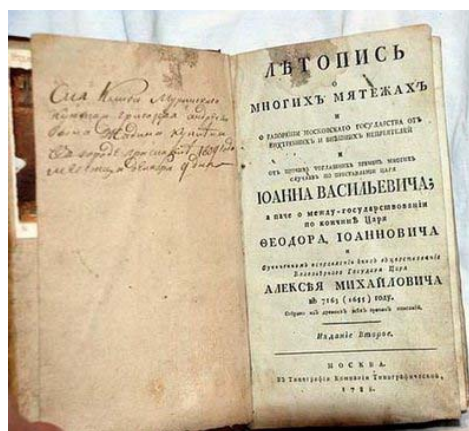 Сия Книга Муромского
купца Григорья Андреева
сына
въ городе 1809 года
месяца декабря дня
ЛѢТОПИСЬ
О
МНОГИХЪ МЯТЕЖАХЪ
И
О РАЗОРЕНІИ МОСКОВСКАГО ГОСУДАРСТВА ОТЪ
ВНУТРЕННИХЪ И ВНѢШНИХЪ НЕПРІЯТЕЛЕЙ
И
ОТЪ ПРОЧИХЪ ТОГДАШНИХЪ ВРЕМЕНЪ МНОГИХЪ
СЛУЧАЕВЪ ПО ПРЕСТАВЛЕНІИ ЦАРЯ
ІОАННА ВАСИЛЬЕВИЧА;
а паче о между-государствованіи
по кончинѣ Царя
ѲЕОДОРА ІОАННОВИЧА
и
книгъ въ царствованіе
Благовѣрнаго Государя Царя
АЛЕКСѢЯ МИХАЙЛОВИЧА
въ 7163 (1655) году.
Собрано изъ древнихъ тѣхъ временъ описаній.
Изданіе Второе.
МОСКВА.
Въ Типографіи Компаніи Типографической,
1788.